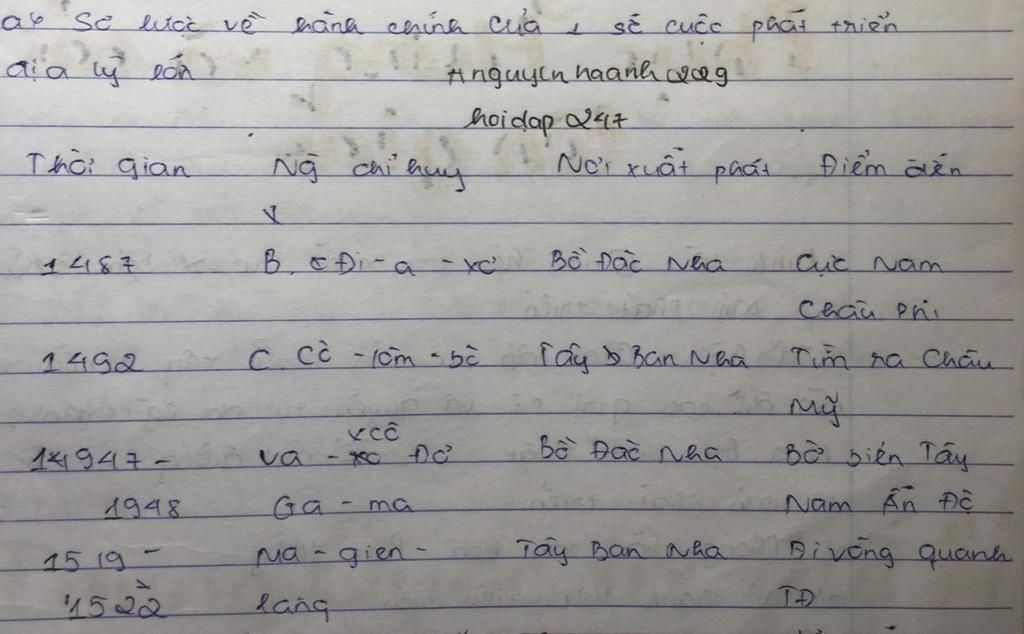 a6 Sơ lược về hành chính của 1 số cuộc phát triển
địa lý lớn #nguyennhaanh2229
hoidap 247
Thời gian Ng̃ chỉ huy Nơi xuất phát Điểm đến
1487 B. Đi-a-xơ Bồ Đào Nha Cực Nam
Châu Phi
1492 C. Cô-lôm-bô Tây Ban Nha Tìm ra Châu
Mỹ
xcô
14947- Va - xc Đơ Bồ Đào Nha Bờ biển Tây
1948 Ga-ma Nam Ấn Độ
1519 - Ma-gien- Tây Ban Nha Đi vòng quanh
1522 lăng TĐ